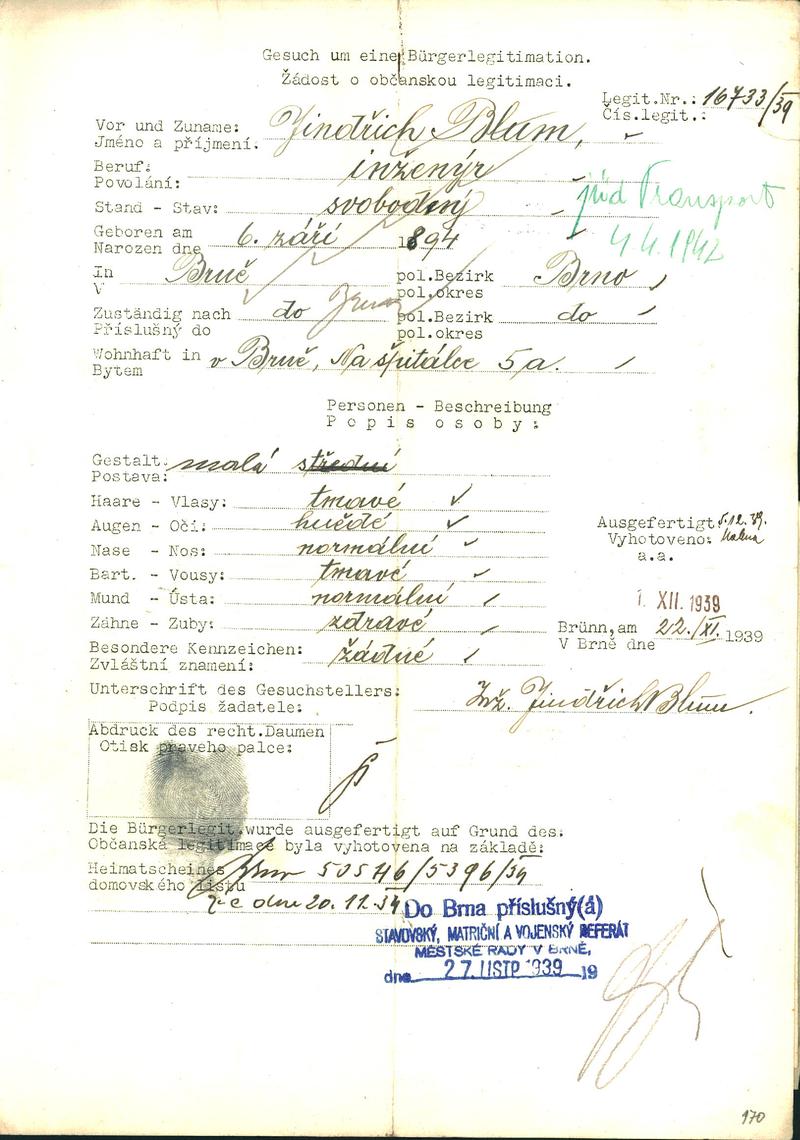 Gesuch um eine Bürgerlegitimation.
Žádost o občanskou legitimaci.
Legit.Nr.: 16733/39
Čís.legit.:
Vor und Zuname: Jindřich Blum,
Jméno a příjmení.
Beruf: inženýr
Povolání:
jüd Transport
Stand - Stav: svobodný
4.4.1942
Geboren am 6. září 1894
Narozen dne
In Brně pol.Bezirk Brno
V pol.okres
Zuständig nach do Brna pol.Bezirk do
Příslušný do pol.okres
Wohnhaft in v Brně, Na špitálce 5a.
Bytem
Personen - Beschreibung
Popis osoby:
Gestalt: malá střední
Postava:
Haare - Vlasy: tmavé
Augen - Oči: hnědé
Ausgefertigt 5.12.39.
Vyhotoveno:
Nase - Nos: normální
a.a.
Bart. - Vousy: tmavé
Mund - Ústa: normální
1. XII. 1939
Zähne - Zuby: zdravé
Brünn, am 22./XI. 1939
V Brně dne
Besondere Kennzeichen: žádné
Zvláštní znamení:
Unterschrift des Gesuchstellers: Inž. Jindřich Blum.
Podpis žadatele:
Abdruck des recht.Daumen
Otisk pravého palce:
Die Bürgerlegit.wurde ausgefertigt auf Grund des:
Občanská legitimace byla vyhotovena na základě:
Heimatscheines Brno 50546/5396/34
domovského listu
ze dne 20.12.34
Do Brna příslušný(á)
STAVOVSKÝ, MATRIČNÍ A VOJENSKÝ REFERÁT
MĚSTSKÉ RADY V BRNĚ,
dne 27. LISTP. 1939 19
170